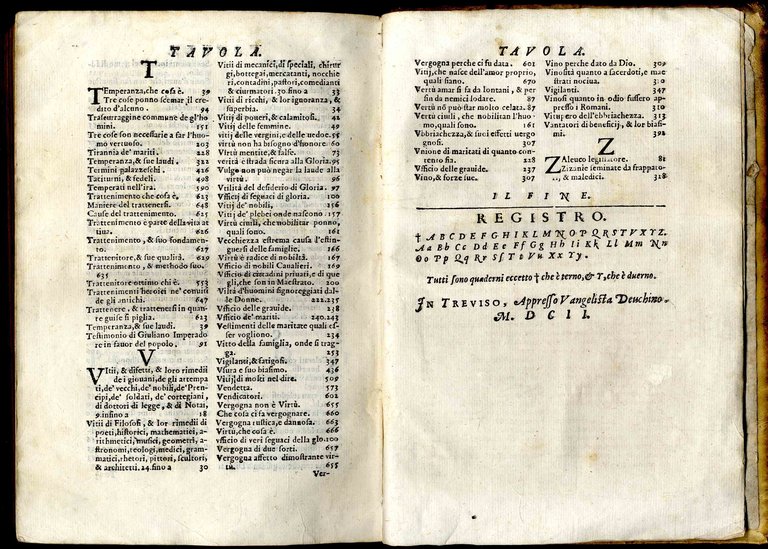 TAVOLA.
T
TEmperanza, che cosa è. 39
Tre cose ponno scemar il cre
dito d'alcuno. 94
Trascuraggine commune de gl'ho
mini. 151
Tre cose son necessarie a far l'huo
mo vertuoso. 203
Tirannia de' mariti. 228
Temperanza, & sue laudi. 322
Termini palazzeschi 426
Taciturni, & fedeli. 498
Temperati nell'ira. 590
Trattenimento che cosa è. 613
Maniere del trattenersi. 648
Cause del trattenimento. 615
Trattenimento è parte della vita at
tiua. 626
Trattenimento, & suo fondamen-
to. 627
Trattenitore, & sua qualità. 629
Trattenimento, & methodo suo.
635
Trattenitore ottimo chi è. 553
Trattenimenti heroici ne' conuiti
de gli antichi. 647
Trattenere, & trattenersi in quan-
te guise si piglia. 623
Temperanza, & sue laudi. 39
Testimonio di Giuliano Imperado
re in fauor del popolo. 91
V
VItii, & difetti, & loro rimedii
de i giouani, de gli attempa
ti, de' vecchi, de' nobili, de' Pren-
cipi, de' soldati, de' cortegiani,
di dottori di legge, & di Notai,
9. infino a 18
Vitii di Filosofi, & lor rimedii di
poeti, historici, mathematici, a-
rithmetici, musici, geometri, a-
stronomi, teologi, medici, gram-
matici, rhetori, pittori, scultori,
& architetti. 24. fino a 30
Vitii di mecanici, di speciali, chirur
gi, bottegai, mercatanti, nocchie
ri, contadini, pastori, comedianti
& ciurmatori. 30. fino a 33
Vitii di ricchi, & lor ignoranza, &
superbia. 34
Vitij di poueri, & calamitosi. 42
Vitij delle femmine. 49
Vitij delle vergini, e delle uedoe. 55
virtù non ha bisogno d'honore. 60
Vertù mentite, & false. 73
verità è strada sicura alla Gloria. 95
Vulgo non può negar la laude alla
virtù. 96
Vtilità del desiderio di Gloria. 97
Vfficij segnaci di gloria. 100
Vitij de' nobili. 156
Vitij de' plebei onde nascono 157
Vertù ciuili, che nobilitar ponno,
quali sono. 161
Vecchiezza estrema causa l'estin-
guersi delle famiglie. 166
Virtù è radice di nobiltà. 167
Vfficio di nobili Caualieri. 169
Vfficio di cittadini priuati, e di que
gli, che son in Maestrato. 200
Viltà d'huomini signoreggiati dal-
le Donne. 222.235
Vfficio delle grauide. 238
Vfficio de' mariti. 240.243
Vestimenti delle maritate quali es-
ser vogliono. 234
Vitto della famiglia, onde si trag-
ga. 253
Vigilanti, & fatigosi. 347
Vsura e suo biasimo. 436
Vitij di molti nel dire. 509
Vendetta. 573
Vendicatori. 602
Vergogna non è Virtù. 655
Che cosa ci fa vergognare. 660
Vergogna rustica, e dannosa. 663
Virtù, che cosa è. 666
Vfficio di veri seguaci della glo. 100
Vergogna di due sorti. 657
Vergogna affetto dimostrante vir-
tù. 655
Ver-
TAVOLA.
Vergogna perche ci fu data. 601
Vitij, che nasce dell'amor proprio,
quali siano. 670
Vertù amar si fa da lontani, & per
fin da nemici lodare. 87
Vertù nō può star molto celata. 87
Vertù ciuili, che nobilitar l'huo-
mo, quali sono. 161
Vbbriachezza, & suoi effetti uergo
gnosi. 307
Vnione di maritati di quanto con-
tento sia. 228
Vfficio delle grauide. 237
Vino, & forze sue. 307
Vino perche dato da Dio. 309
Vinosità quanto a sacerdoti, e mae
strati nociua. 310
Vigilanti. 347
Vinosi quanto in odio fussero ap-
presso i Romani. 310
Vitupero dell'ebbriachezza. 313
Vantatori di beneficij, & lor biasi-
mi. 392
Z
ZAleuco legislatore. 81
Zizanie seminate da frappato-
ri, & maledici. 318
IL FINE.
REGISTRO.
† A B C D E F G H I K L M N O P Q R S T V X Y Z.
Aa Bb Cc Dd Ee Ff Gg Hh Ii Kk Ll Mm Nn
Oo Pp Qq Rr Sſ Tt Vu Xx Yy.
Tutti sono quaderni eccetto † che è terno, & Y, che è duerno.
IN TREVISO, Appresso Vangelista Deuchino.
M. D C I I.